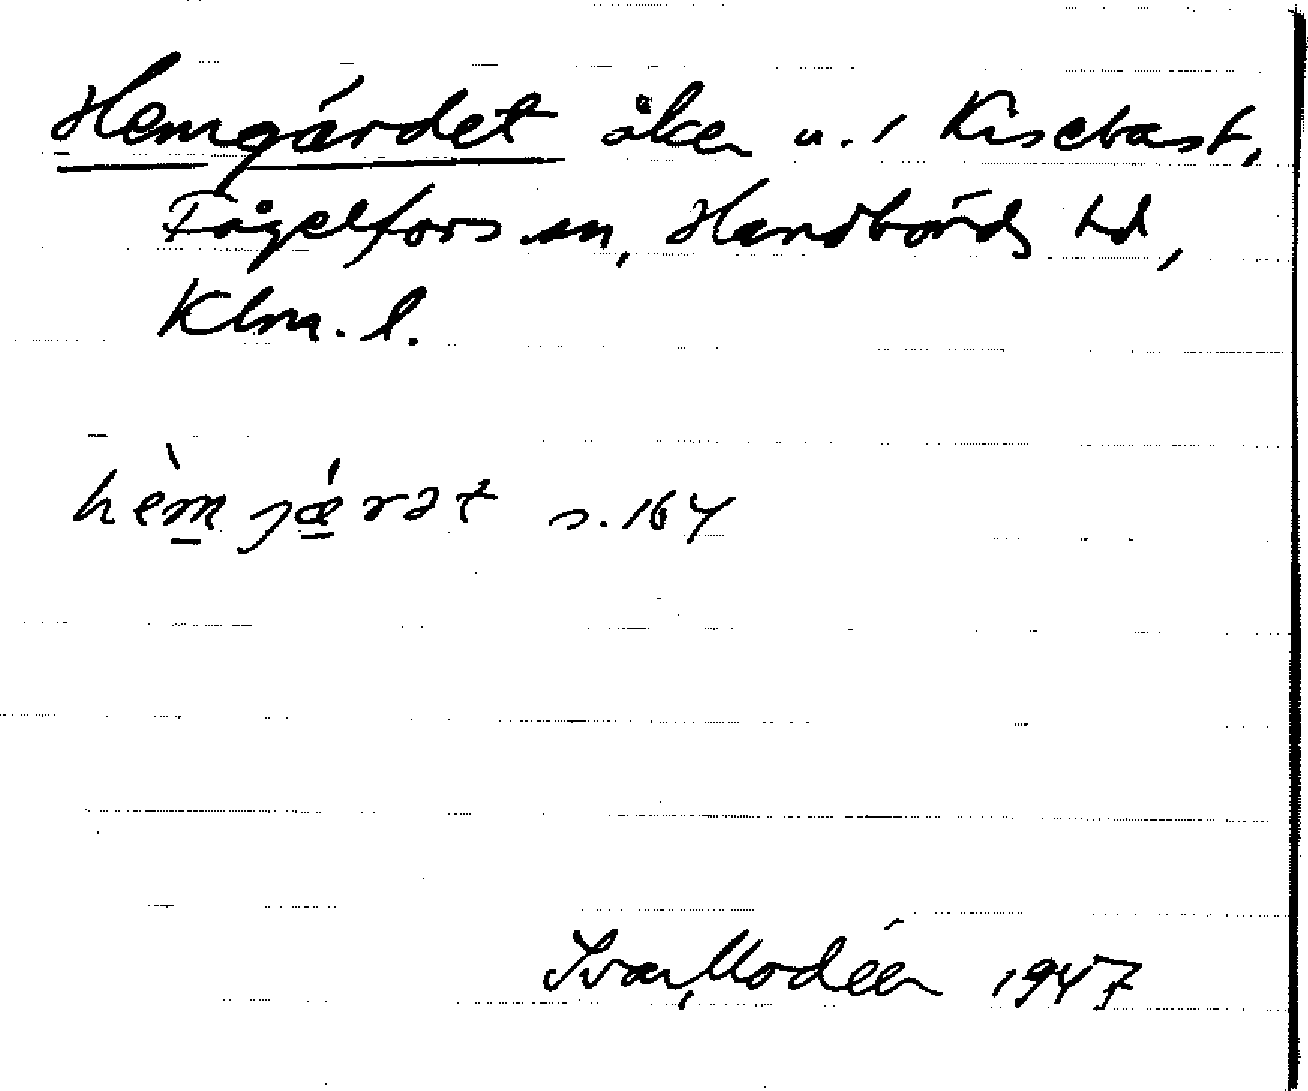 Hemgärdet åker u. 1 Kisebast,
Fågelfors sn, Handbörds hd,
Klm. l.
hèmjærət s. 164
Ivar Modéer 1947